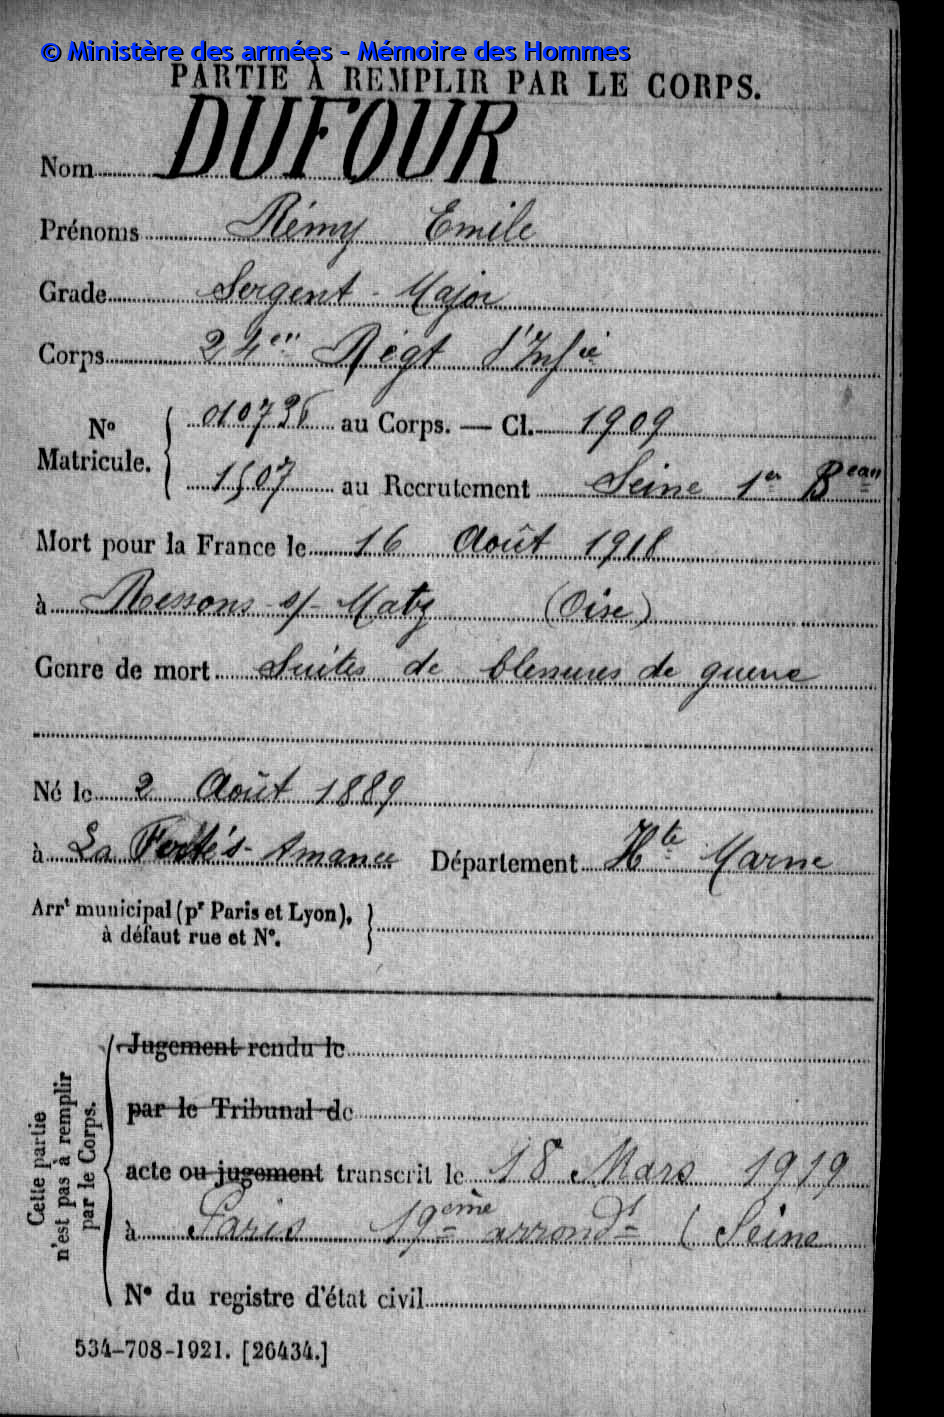 © Ministère des armées - Mémoire des Hommes
PARTIE À REMPLIR PAR LE CORPS.
Nom DUFOUR
Prénoms Rémy Emile
Grade Sergent - Major
Corps 24em Régt d'Infie
No Matricule. { 010736 au Corps. — Cl. 1909
1507 au Recrutement Seine 1er Beau
Mort pour la France le 16 Août 1918
à Ressons s/ Matz (Oise)
Genre de mort Suites de blessures de guerre
Né le 2 Août 1889
à La Ferté s- Amance Département Hte Marne
Arrt municipal (pr Paris et Lyon), à défaut rue et No. }
Cette partie n'est pas à remplir par le Corps.
Jugement rendu le
par le Tribunal de
acte ou jugement transcrit le 18 Mars 1919
à Paris 19ème arrondt (Seine
No du registre d'état civil
534-708-1921. [26434.]